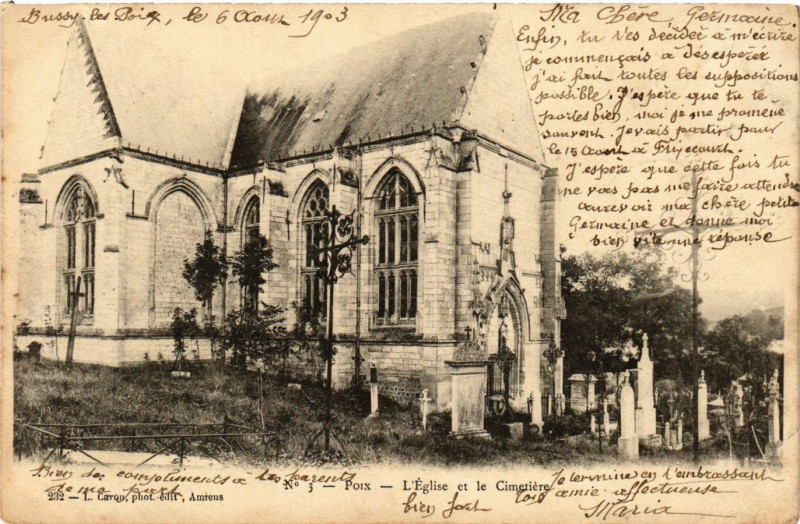 Bussy-les Poix, le 6 Aout 1903
Ma Chère Germaine.
Enfin, tu t'es décidée à m'ecrire
je commençais a désespérér
j'ai fait toutes les suppositions
possible. J'espère que tu te
portes bien, moi je me promène
souvent. Je vais partir pour
le 15 Aout a
J'espère que cette fois tu
ne vas pas me faire attendre
aurevoir ma chère petite
Germaine et donne moi
bien vite une réponse
Bien des compliments à tes parents
de ma part
N° 3 — POIX — L'Église et le Cimetière
232 — L. Caron, phot.-édit, Amiens
Je termine en t'embrassant
bien fort ton amie affectueuse
Maria